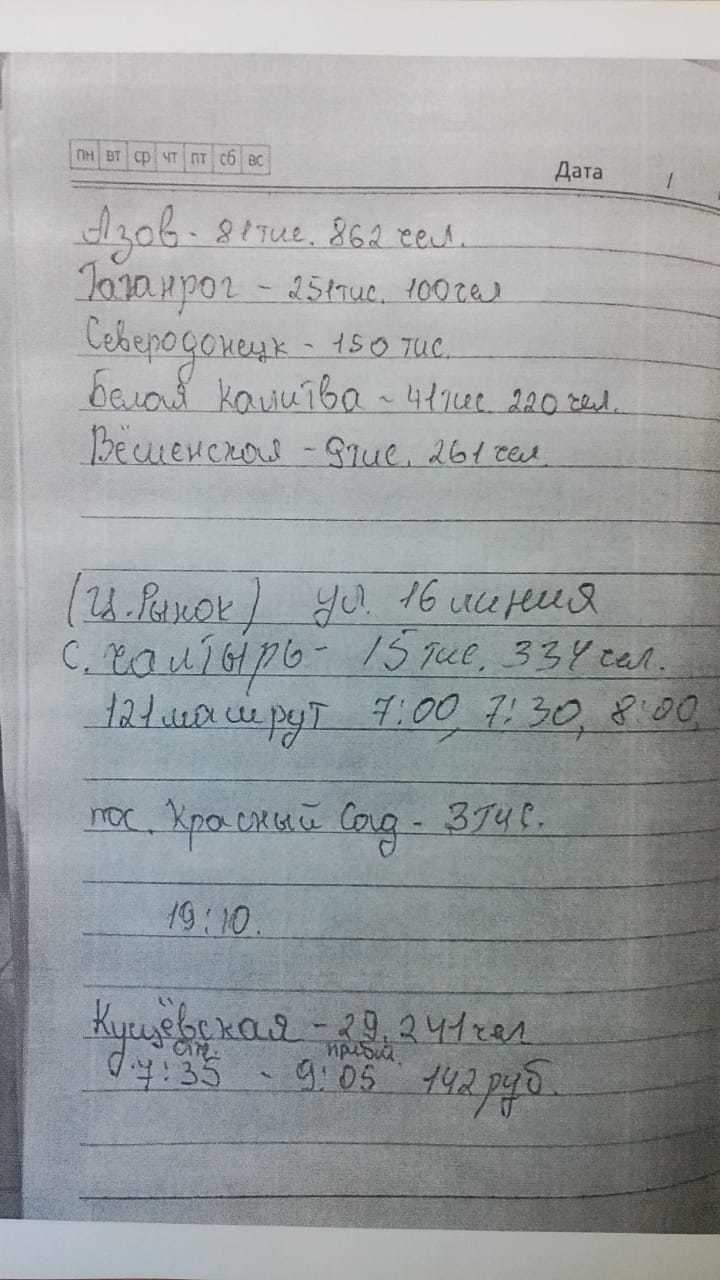 пн вт ср чт пт сб вс
Дата /
Азов - 81 тис. 862 чел.
Таганрог - 251 тис. 100 чел
Северодонецк - 150 тис.
Белая Калитва - 41 тис. 220 чел.
Вёшенская - 9 тис. 261 чел.
(Ц. Рынок) ул. 16 линия
с. Чалтырь - 15 тис. 334 чел.
121 машрут 7:00, 7:30, 8:00,
пос. Красный Сад - 3 тис.
19:10.
Кущёвская - 29. 241 чел
отп. прибыт.
7:35 - 9:05 142 руб.